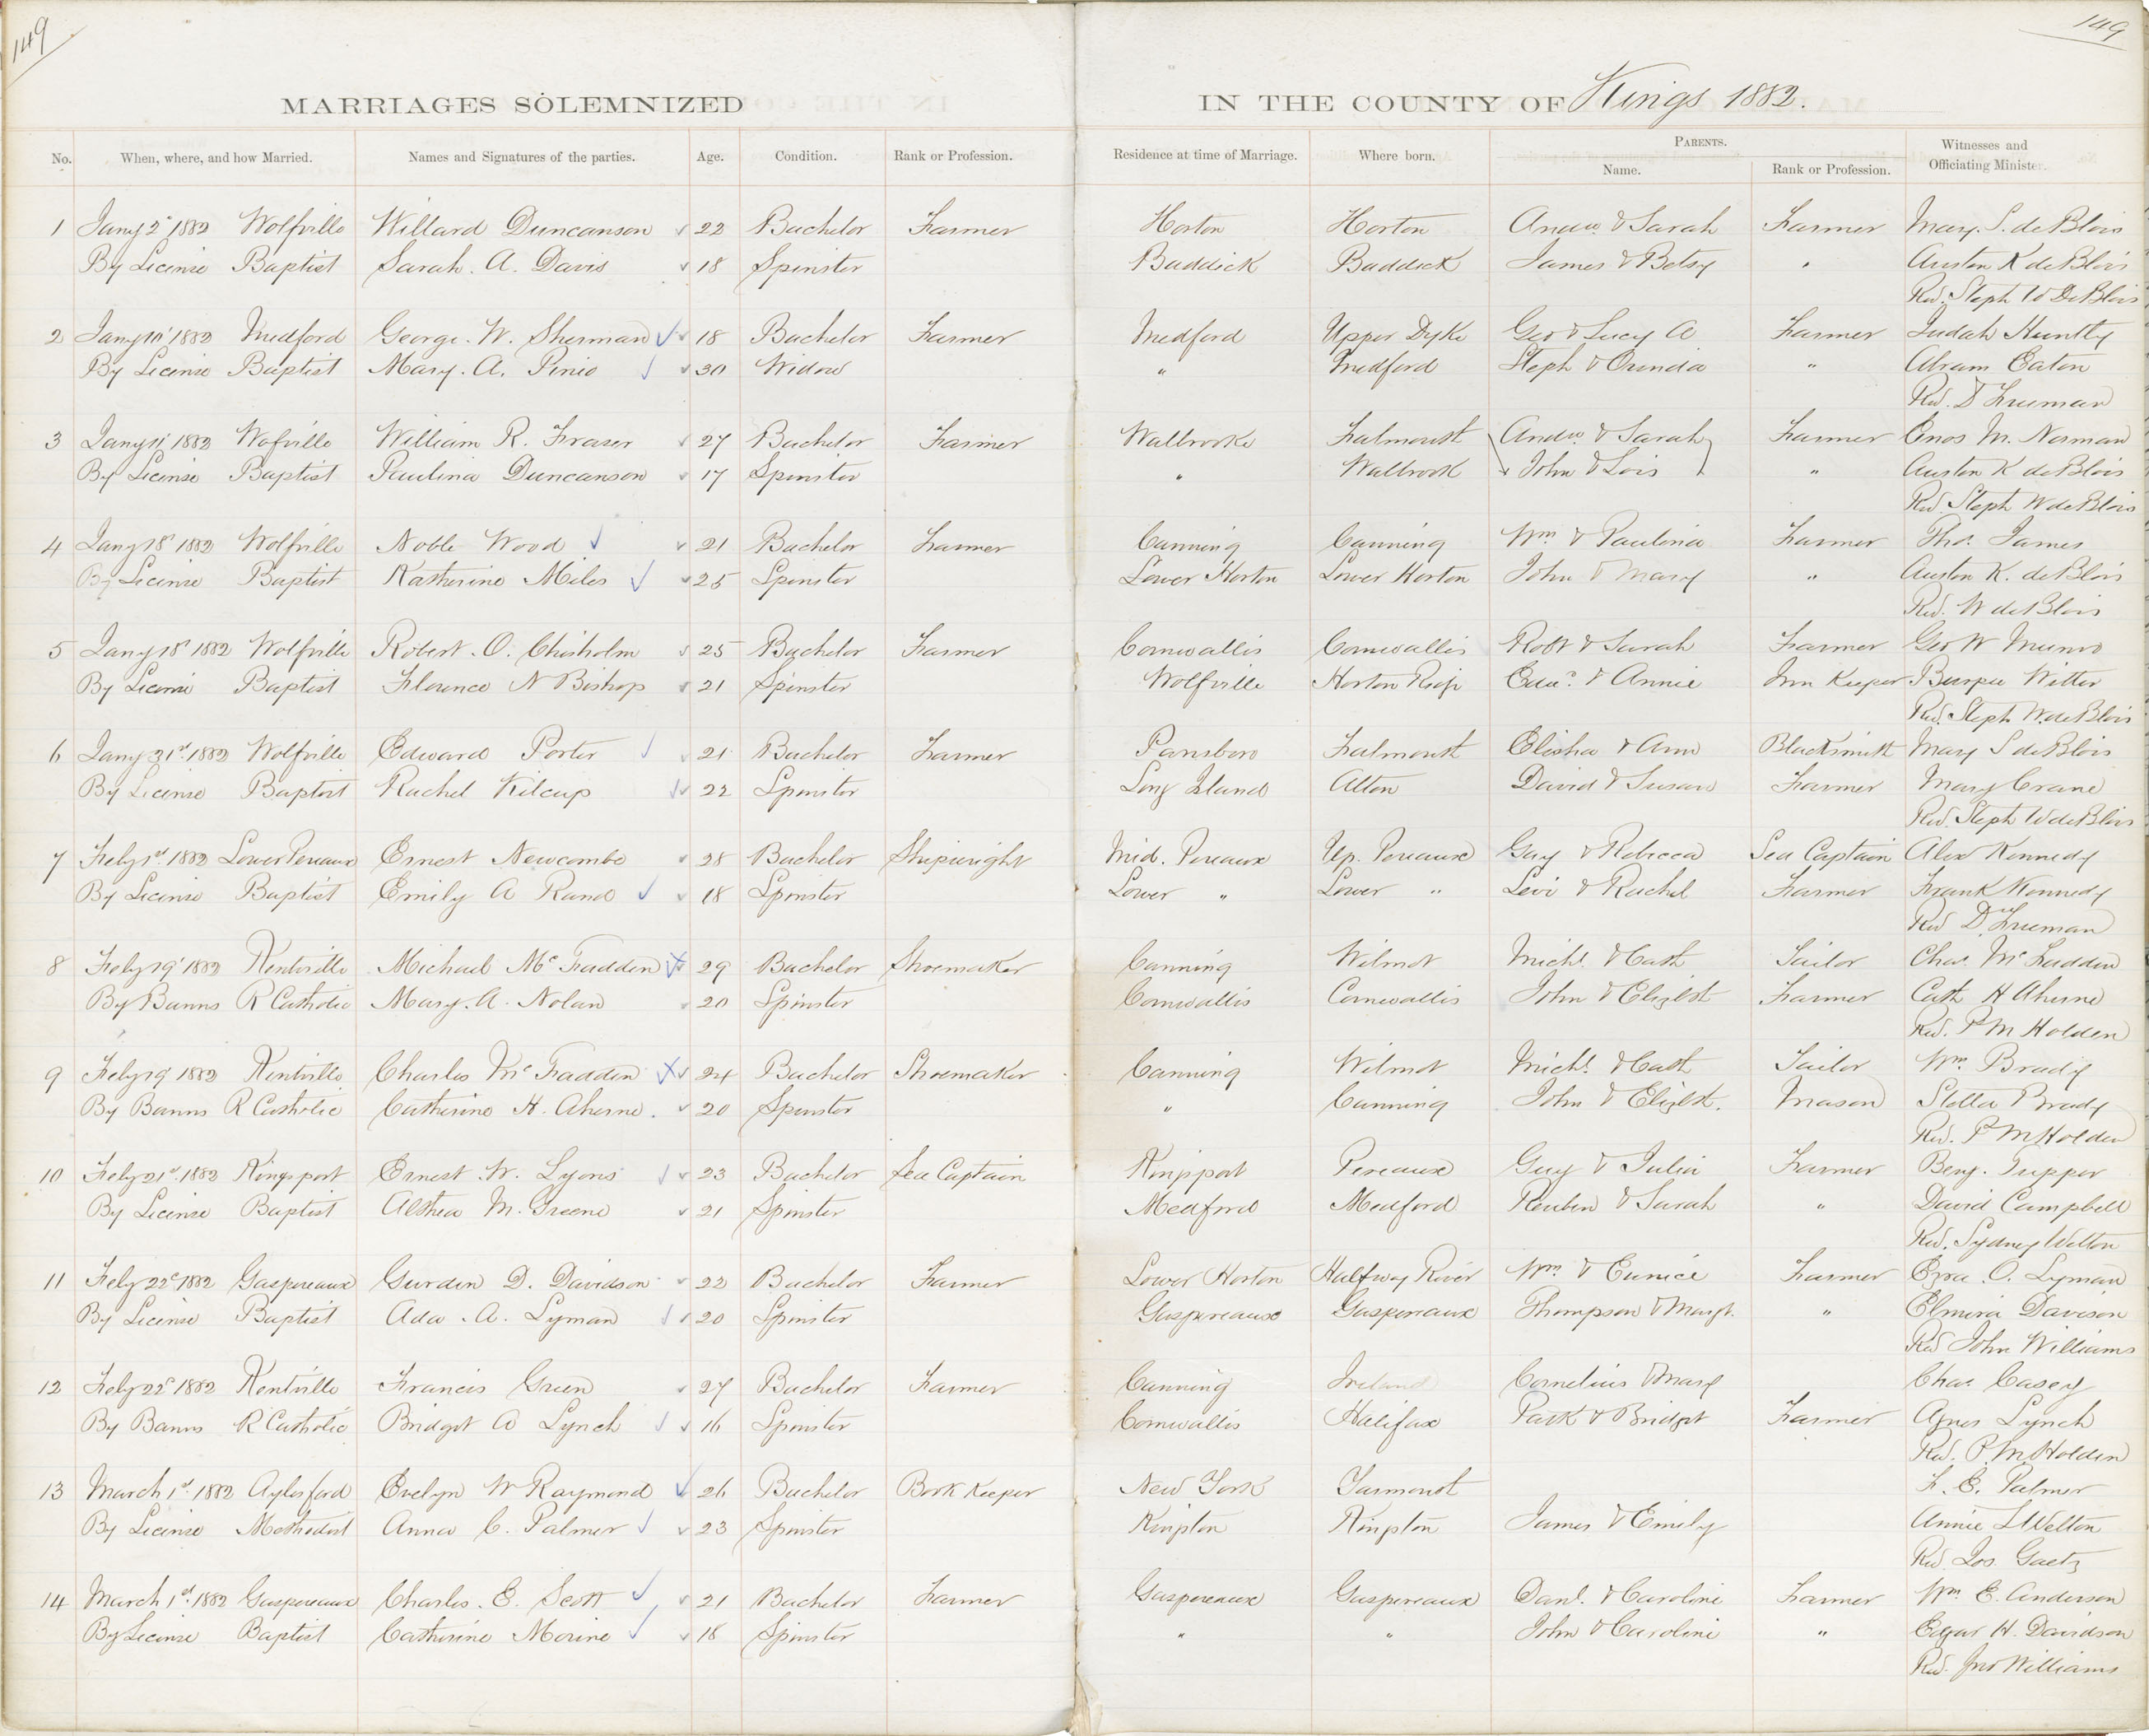 149 149
MARRIAGES SOLEMNIZED IN THE COUNTY OF Kings 1882.
No. When, where, and how Married. Names and Signatures of the parties. Age. Condition. Rank or Profession. Residence at time of Marriage. Where born. PARENTS. Name. Rank or Profession. Witnesses and Officiating Minister.
1 Jany 2d 1882 Wolfville Willard Duncanson 22 Bachelor Farmer Horton Horton Andw. & Sarah Farmer Mary. S. deBlois
By License Baptist Sarah. A. Davis 18 Spinster Baddick Baddick James & Betsy " Austen K deBlois
Rev. Steph W DeBlois
2 Jany 10' 1882 Medford George. W. Sherman 18 Bachelor Farmer Medford Upper Dyke Geo & Lucy A Farmer Judah Huntly
By License Baptist Mary. A. Pinio 30 Widow " Medford Steph & Orinda " Abram Eaton
Rev. D Freeman
3 Jany 11' 1882 Wofville William R. Fraser 27 Bachelor Farmer Walbrooke Falmouth Andw. & Sarah Farmer Enos M. Norman
By License Baptist Paulina Duncanson 17 Spinster " Walbrook John & Lois " Austen K deBlois
Rev. Steph W deBlois
4 Jany 18' 1882 Wolfville Noble Wood 21 Bachelor Farmer Canning Canning Wm & Paulina Farmer Thos. James
By License Baptist Katherine Miles 25 Spinster Lower Horton Lower Horton John & Mary " Austen K. deBlois
Rev. W deBlois
5 Jany 18' 1882 Wolfville Robert. O. Chisholm 25 Bachelor Farmer Cornwallis Cornwallis Robt & Sarah Farmer Geo W Munro
By License Baptist Florence N Bishop 21 Spinster Wolfville Horton & Annie Inn Keeper Burpee Witter
Rev. Steph W. deBlois
6 Jany 31st. 1882 Wolfville Edward Porter 21 Bachelor Farmer Parrsboro Falmouth Elisha & Ann Blacksmith Mary S deBlois
By License Baptist Rachel Kilcup 22 Spinster Long Island Alton David & Susan Farmer Mary Crane
Rev. Steph W deBlois
7 Feby 1st. 1882 Lower Pereaux Ernest Newcombe 28 Bachelor Shipwright Mid. Pereaux Up. Pereaux Guy & Rebecca Sea Captain Alex Kennedy
By License Baptist Emily A Rand 18 Spinster Lower " Lower " Levi & Rachel Farmer Frank Kennedy
Rev D. Freeman
8 Feby 19' 1882 Kentville Michael Mc Fadden 29 Bachelor Shoemaker Canning Wilmot Michl. & Cath Tailor Chas. Mc Fadden
By Banns R Catholic Mary. A. Nolan 20 Spinster Cornwallis Cornwallis John & Elizbt Farmer Cath H Aherne
Rev. P M Holden
9 Feby 19' 1882 Kentville Charles Mc Fadden 24 Bachelor Shoemaker Canning Wilmot Michl. & Cath Tailor Wm. Brady
By Banns R Catholic Catherine H. Aherne. 20 Spinster " Canning John & Elizbt. Mason Stella Brady
Rev. P M Holden
10 Feby 21st. 1882 Kingsport Ernest. W. Lyons 23 Bachelor Sea Captain Kingsport Pereaux Guy & Julia Farmer Benj. Tupper
By License Baptist Althea M. Greene 21 Spinster Medford Medford Reuben & Sarah " David Campbell
Rev. Sydney Welton
11 Feby 22d 1882 Gaspereaux Gurden D. Davidson 22 Bachelor Farmer Lower Horton Halfway River Wm. & Eunice Farmer Ezra. O. Lyman
By License Baptist Ada. A. Lyman 20 Spinster Gaspereaux Gaspereaux Thompson & Margt. " Elmira Davison
Rev John Williams
12 Feby 22d 1882 Kentville Francis Green 27 Bachelor Farmer Canning Ireland Cornelius & Mary Chas. Casey
By Banns R Catholic Bridget A Lynch 16 Spinster Cornwallis Halifax Patk & Bridget Farmer Agnes Lynch
Rev. P. M. Holden
13 March 1st. 1882 Aylesford Evelyn W Raymond 26 Bachelor Book Keeper New York Yarmouth F. E. Palmer
By License Methodist Anna C. Palmer 23 Spinster Kingston Kingston James & Emily Annie L Welton
Rev Jos. Gaetz
14 March 1st. 1882 Gaspereaux Charles. E. Scott 21 Bachelor Farmer Gaspereaux Gaspereaux Danl. & Caroline Farmer Wm. E. Anderson
By License Baptist Catherine Morine 18 Spinster " " John & Caroline " Edgar H. Davidson
Rev. Jno Williams